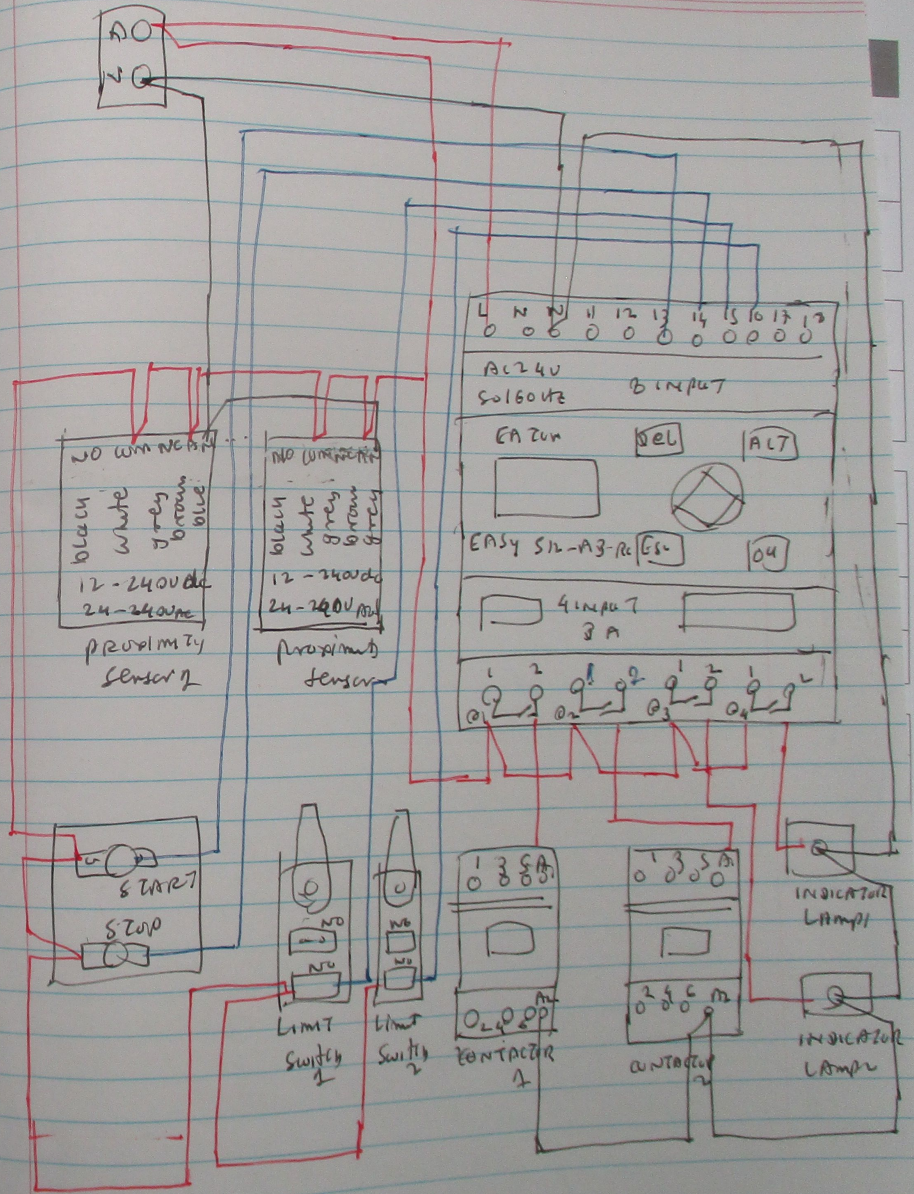 A
N
L N N I1 I2 I3 I4 I5 I6 I7 I8
AC24V
50/60HZ
8 INPUT
EATON
DEL
ALT
EASY 512-AB-RC
ESC
OK
4 INPUT
8 A
1 2 1 2 1 2 1 2
Q1 Q2 Q3 Q4
NO COM NC A1
black
white
grey
brown
blue
12-240Vdc
24-240VAC
proximity
sensor 2
NO COM NC
black
white
grey
brown
grey
12-240Vdc
24-240VAC
proximity
sensor
START
STOP
NO
NO
LIMIT
switch
1
NO
NO
Limit
switch
2
1 3 5 A1
2 4 6 A2
CONTACTOR
1
1 3 5 A1
2 4 6 A2
CONTACTOR
2
INDICATOR
LAMP1
INDICATOR
LAMP2